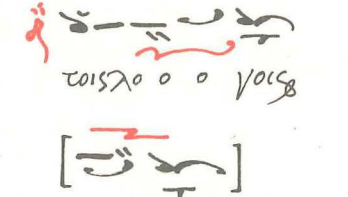 τοις λο ο ο γοις